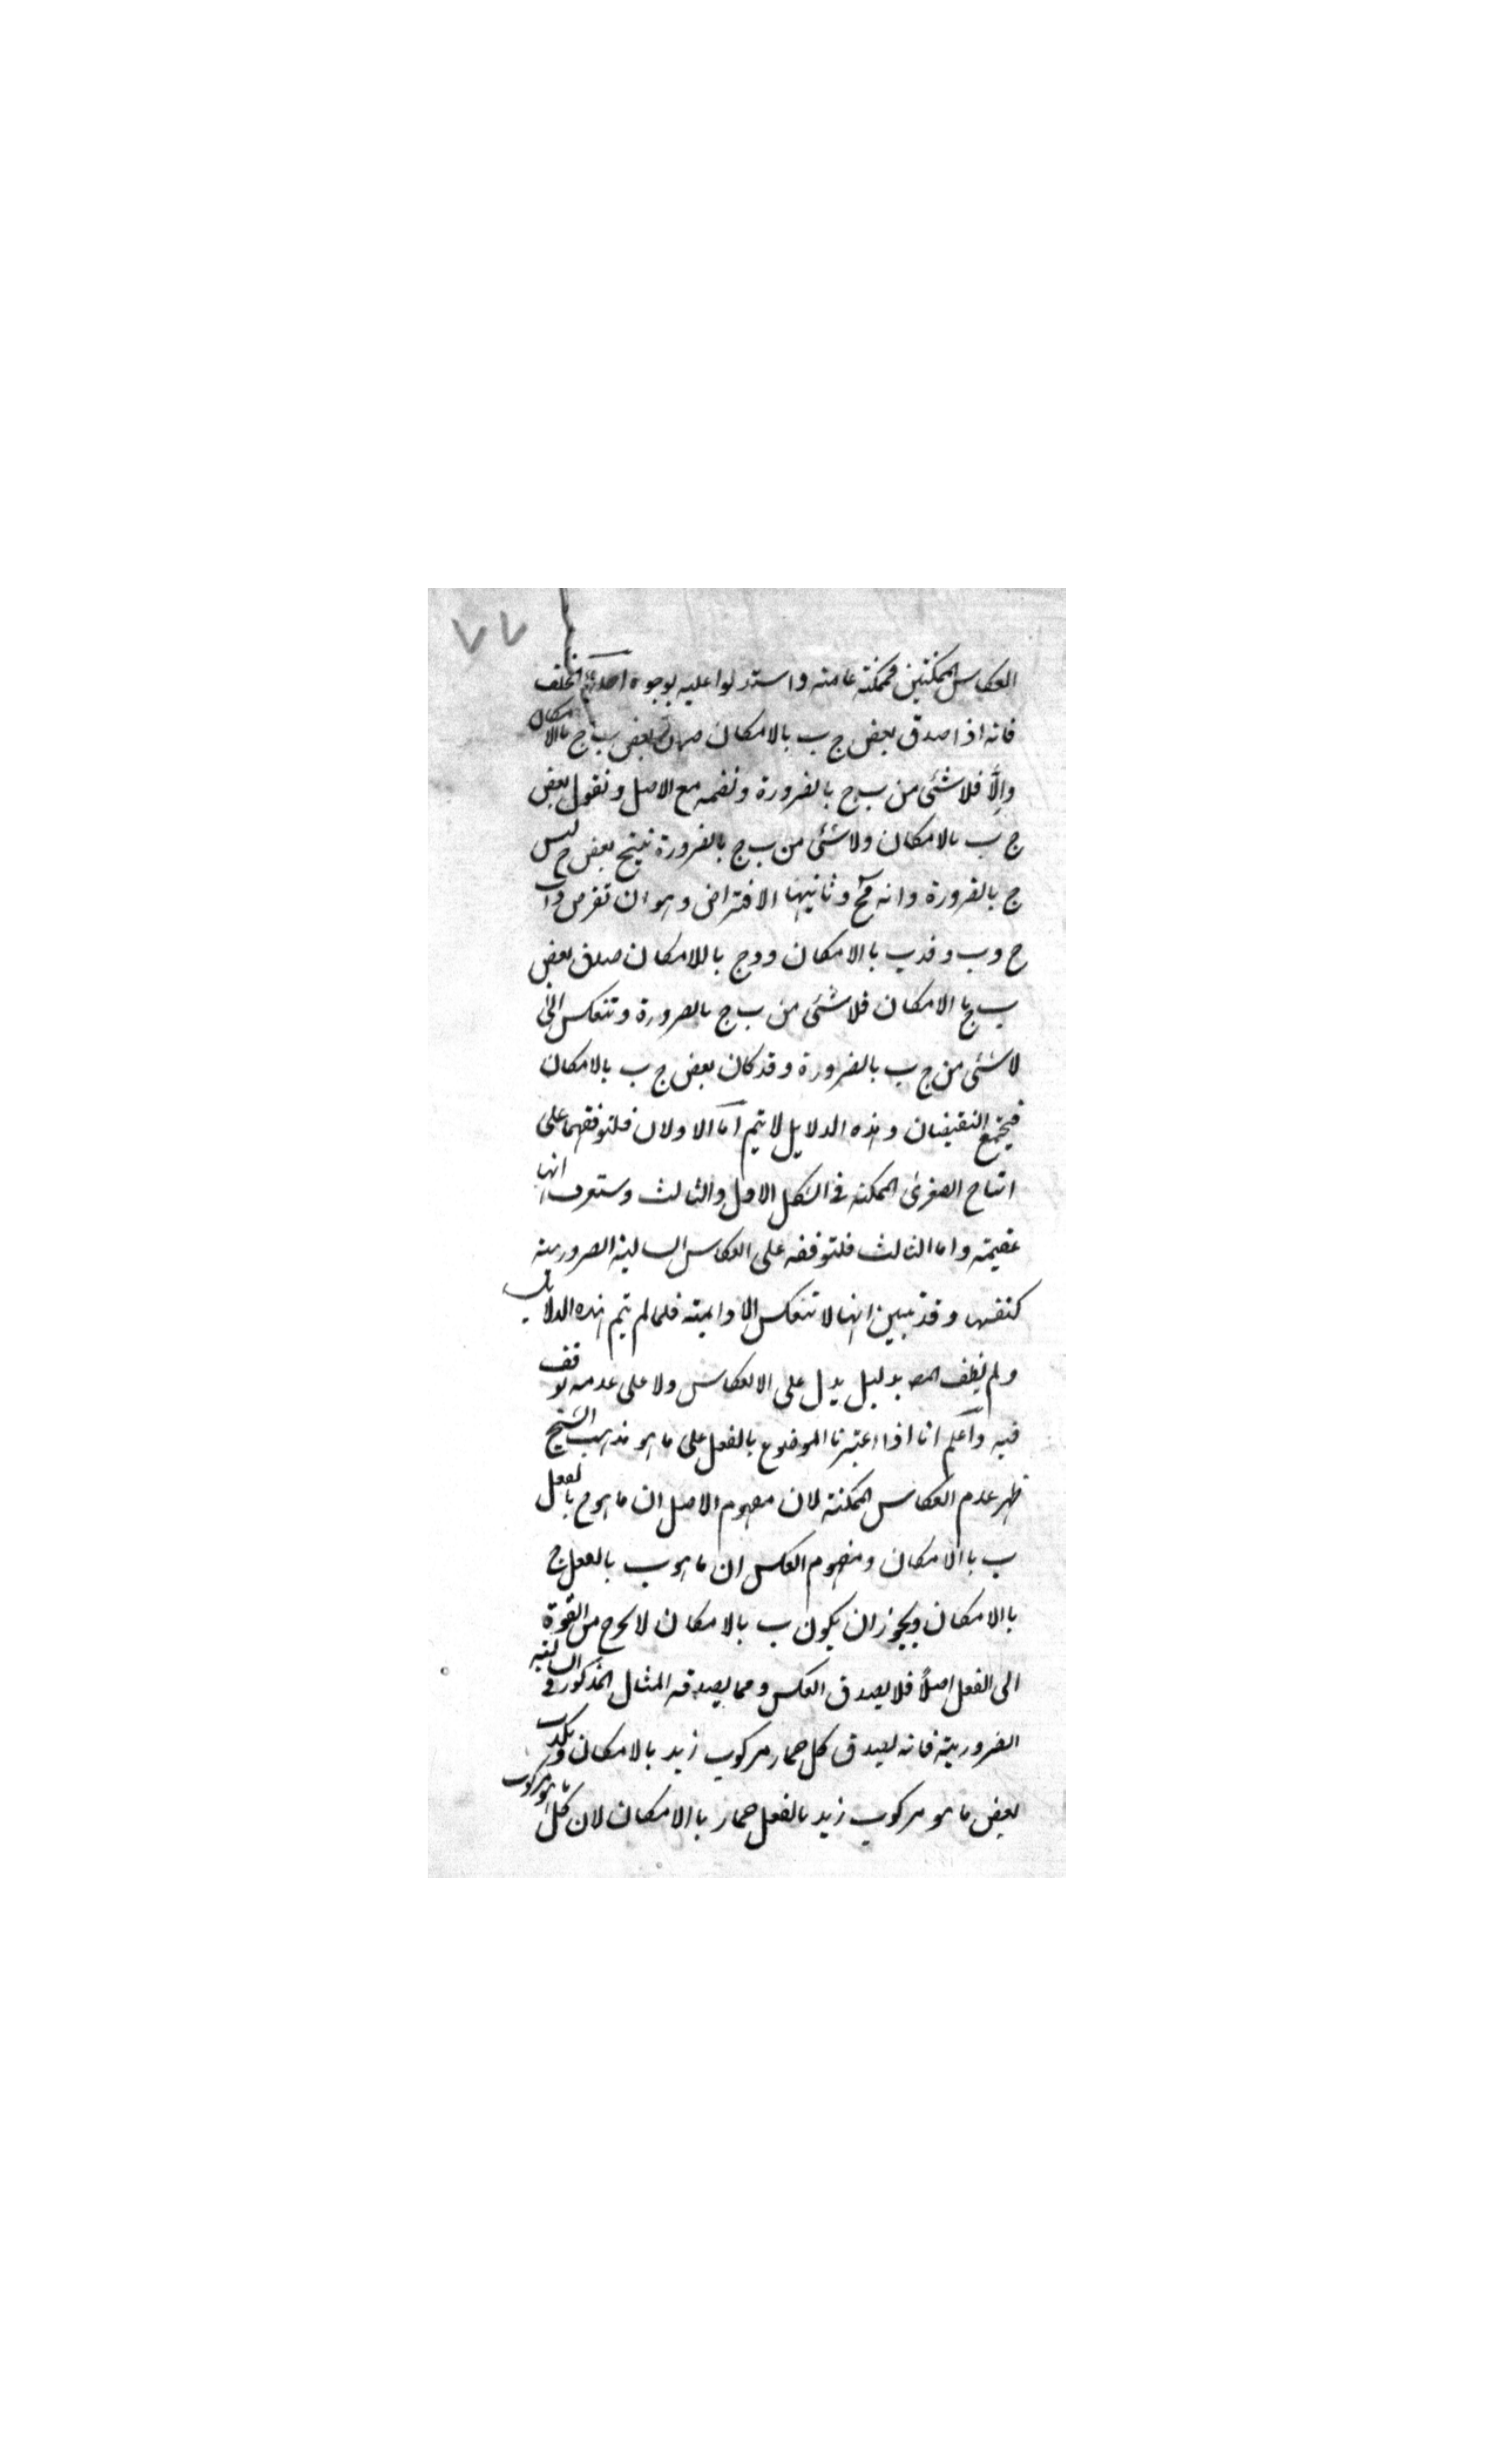 ٧٧
انعكاس الممكنتين ممكنة عامة واستدلوا عليه بوجوه احدها الخلف
فانه اذا صدق بعض ج ب بالامكان صدق بعض ب ج بالامكان
والّا فلا شئ من ب ج بالضرورة ونضمه مع الاصل ونقول بعض
ج ب بالامكان ولا شئ من ب ج بالضرورة ينتج بعض ج ليس
ج بالضرورة وانه مح وثانيها الافتراض وهو ان نفرض ذات
ج وب د فد ب باالامكان و د ج باللامكان صدق بعض
ب ج باالامكان فلا شئ من ب ج بالضرورة وتنعكس الى
لا شئ من ج ب بالضرورة وقد كان بعض ج ب بالامكان
فيجتمع النقيضان وهذه الدلايل لا يتم اما الاولان فلتوقفهما على
انتاج الصغرى الممكنة فى الشكل الاول والثالث وستعرف انها
عقيمة واما الثالث فلتوقفه على انعكاس السالبة الضرورية
كنفسها وقد تبين انها لا تنعكس الا دايمة فلما لم يتم هذه الدلايل
ولم يظفر المص بدليل يدل على الانعكاس ولا على عدمه توقف
فيه واعلم انا اذا اعتبرنا الموضوع بالفعل على ما هو مذهب الشيخ
ظهر عدم انعكاس الممكنة لان مفهوم الاصل ان ما هو ج بالفعل
ب باالامكان ومفهوم العكس ان ما هو ب بالفعل ج
باالامكان ويجوز ان يكون ب بالامكان لا يخرج من القوة
الى الفعل اصلاً فلا يصدق العكس ومما يصدقه المثال المذكور فى السالبة
الضرورية فانه يصدق كل حمار مركوب زيد بالامكان ويكذب
بعض ما هو مركوب زيد بالفعل حمار باالامكان لان كل ما هو مركوب